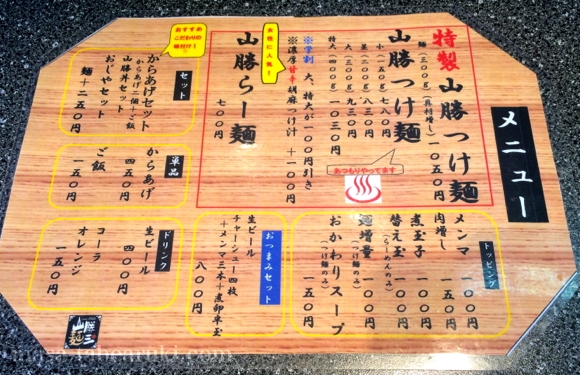 メニュー
特製 山勝つけ麺
麺(三〇〇g)(具材増し) 一〇五〇円
山勝つけ麺
小(一五〇g)七八〇円
並(二〇〇g)八三〇円
大(三〇〇g)九三〇円
特大(四〇〇g)一〇三〇円
あつもりやってます
※学割 大、特大が一〇〇円引き
※濃厚甘辛胡麻つけ汁 +一〇〇円
女性に人気!
山勝らー麺
七〇〇円
おすすめ
こだわりの
味付け!
セット
からあげセット
からあげ二個+ご飯
山勝丼セット
おしゃセット
麺+二五〇円
単品
からあげ
四五〇円
ご飯
一五〇円
トッピング
メンマ 一〇〇円
肉増し 一五〇円
煮玉子 一〇〇円
替え玉 一〇〇円
(らーめんのみ)
麺増量 一〇〇円
(つけ麺のみ)
おかわりスープ
(つけ麺のみ) 一五〇円
おつまみセット
生ビール
チャーシュー四枚
+メンマ三本+煮卵半玉
八〇〇円
ドリンク
生ビール
四〇〇円
コーラ
オレンジ
一五〇円